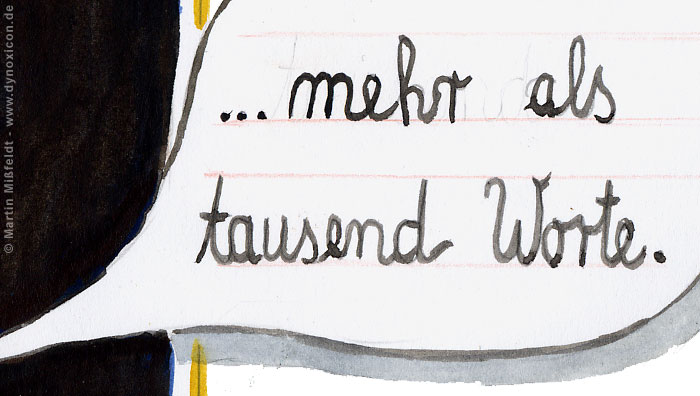 ... mehr als
tausend Worte.
© Martin Mißfeldt - www.dynoxicon.de